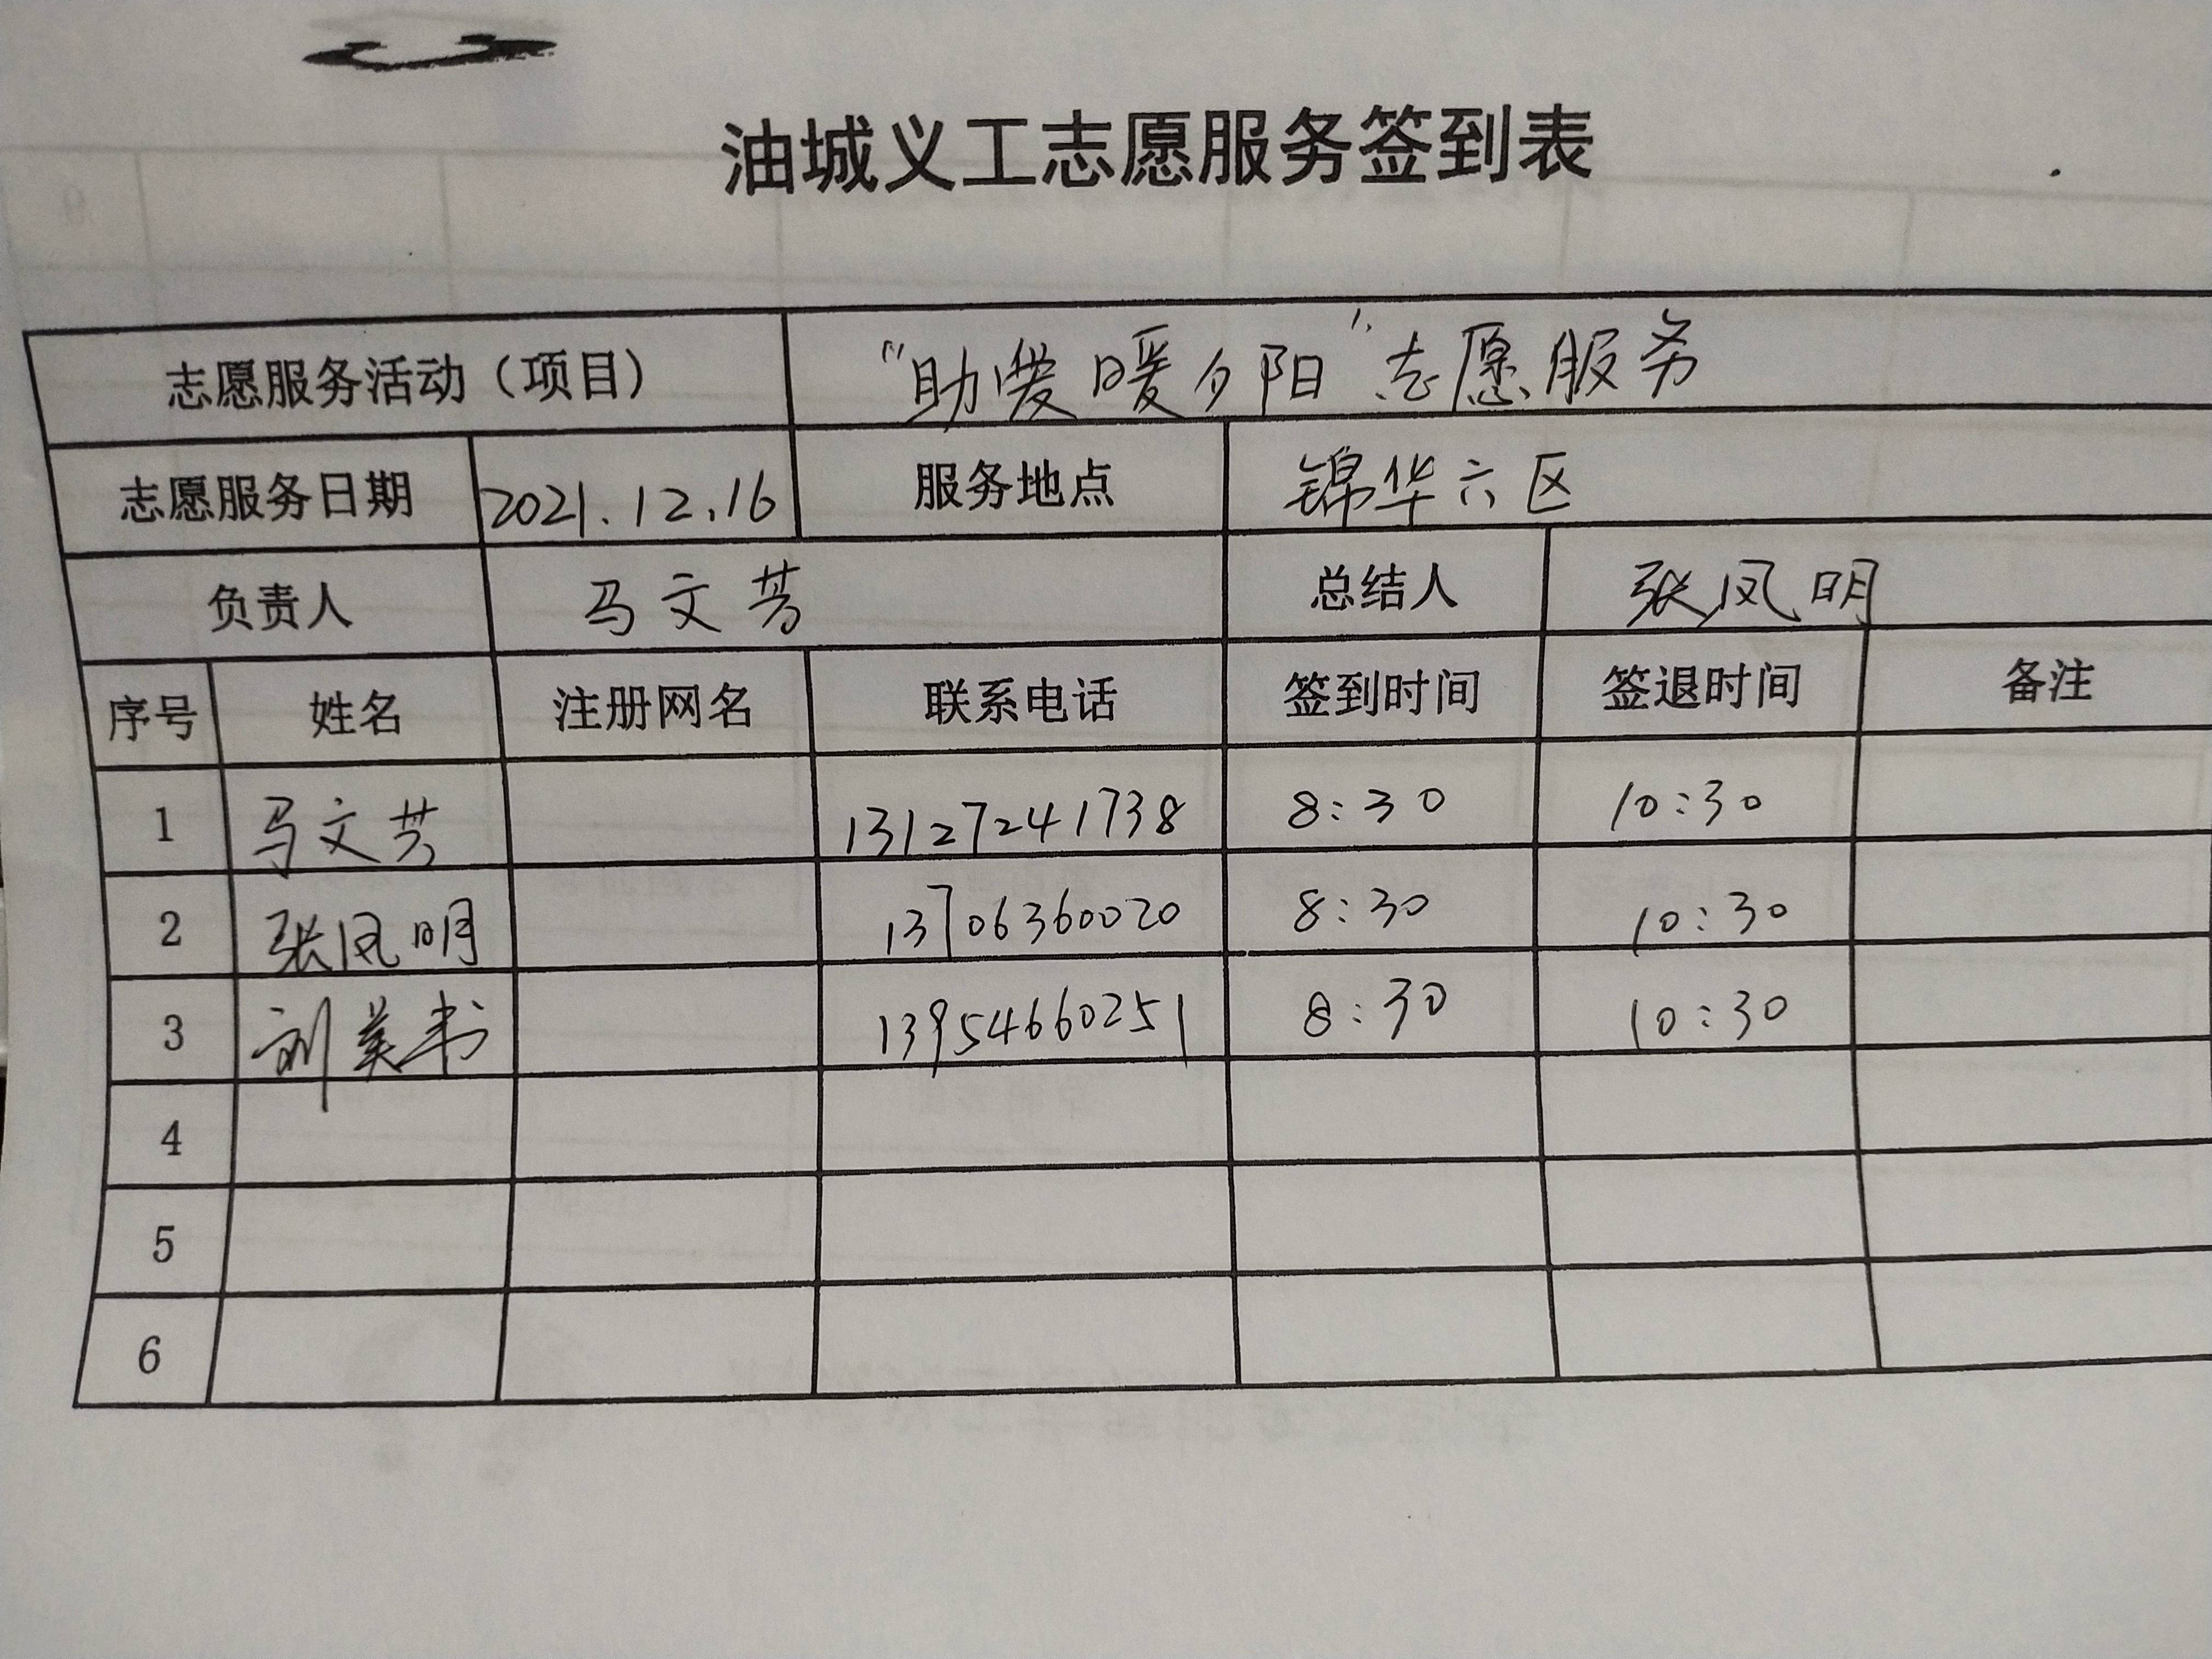 油城义工志愿服务签到表
志愿服务活动（项目） “助餐暖夕阳”志愿服务
志愿服务日期 2021.12.16 服务地点 锦华六区
负责人 马文芳 总结人 张凤明
序号 姓名 注册网名 联系电话 签到时间 签退时间 备注
1 马文芳 13127241738 8:30 10:30
2 张凤明 13706360020 8:30 10:30
3 刘英书 13954660251 8:30 10:30
4
5
6